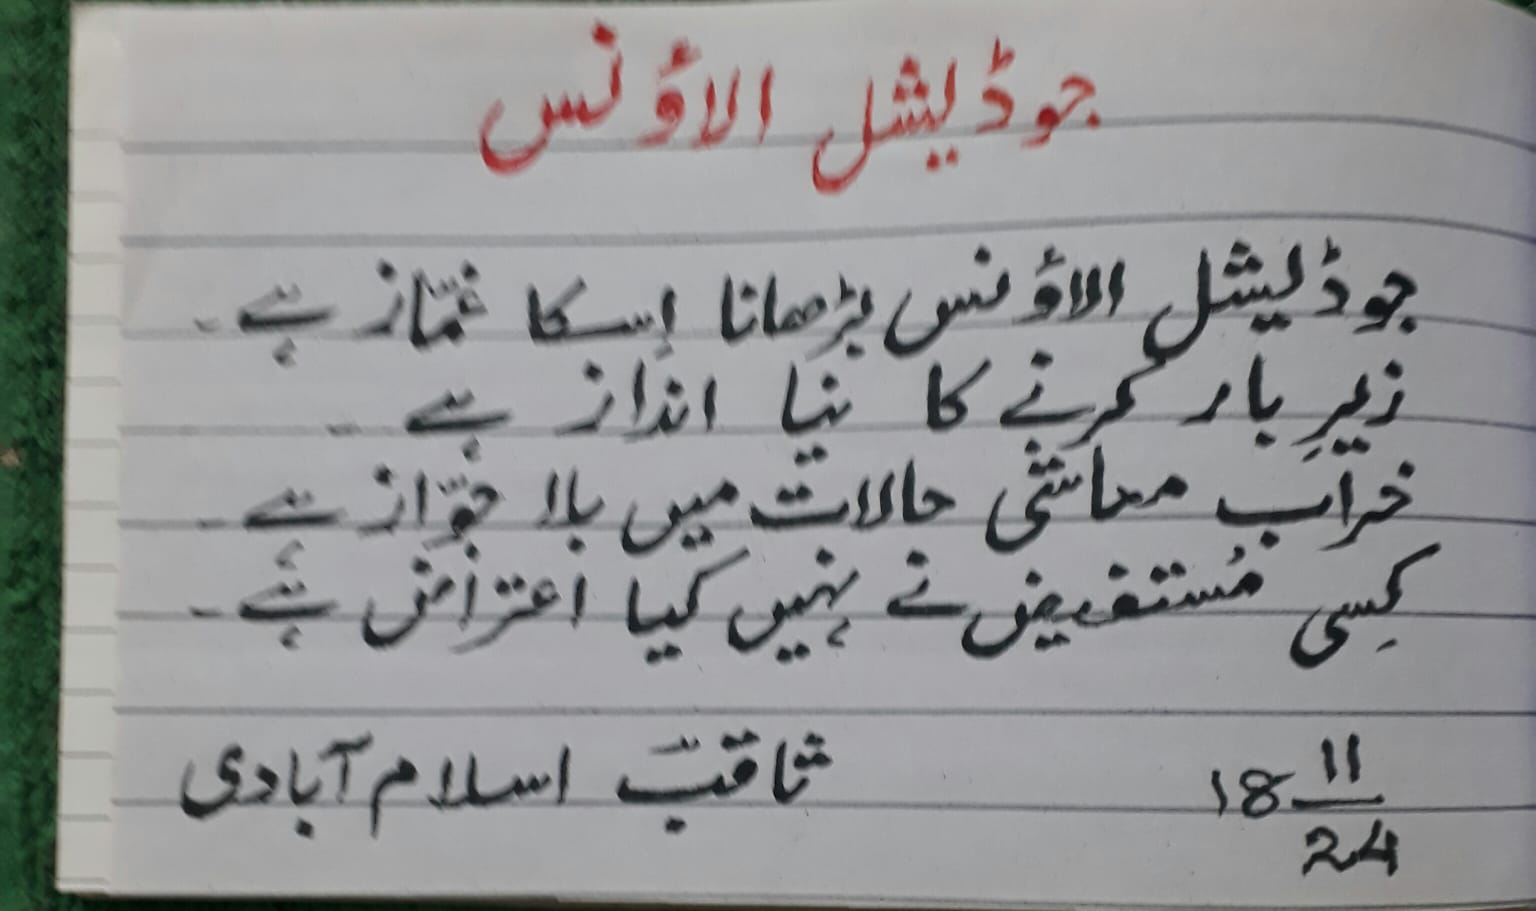 جوڈیشل الاؤنس
جوڈیشل الاؤنس بڑھانا اِسکا غمّاز ہے۔
زیرِ بار کرنے کا نیا انداز ہے۔
خراب معاشی حالات میں بلا جوّاز ہے۔
کِسی مُستفیض نے نہیں کیا اعتراض ہے۔
ثاقب اسلام آبادی
18 11/24